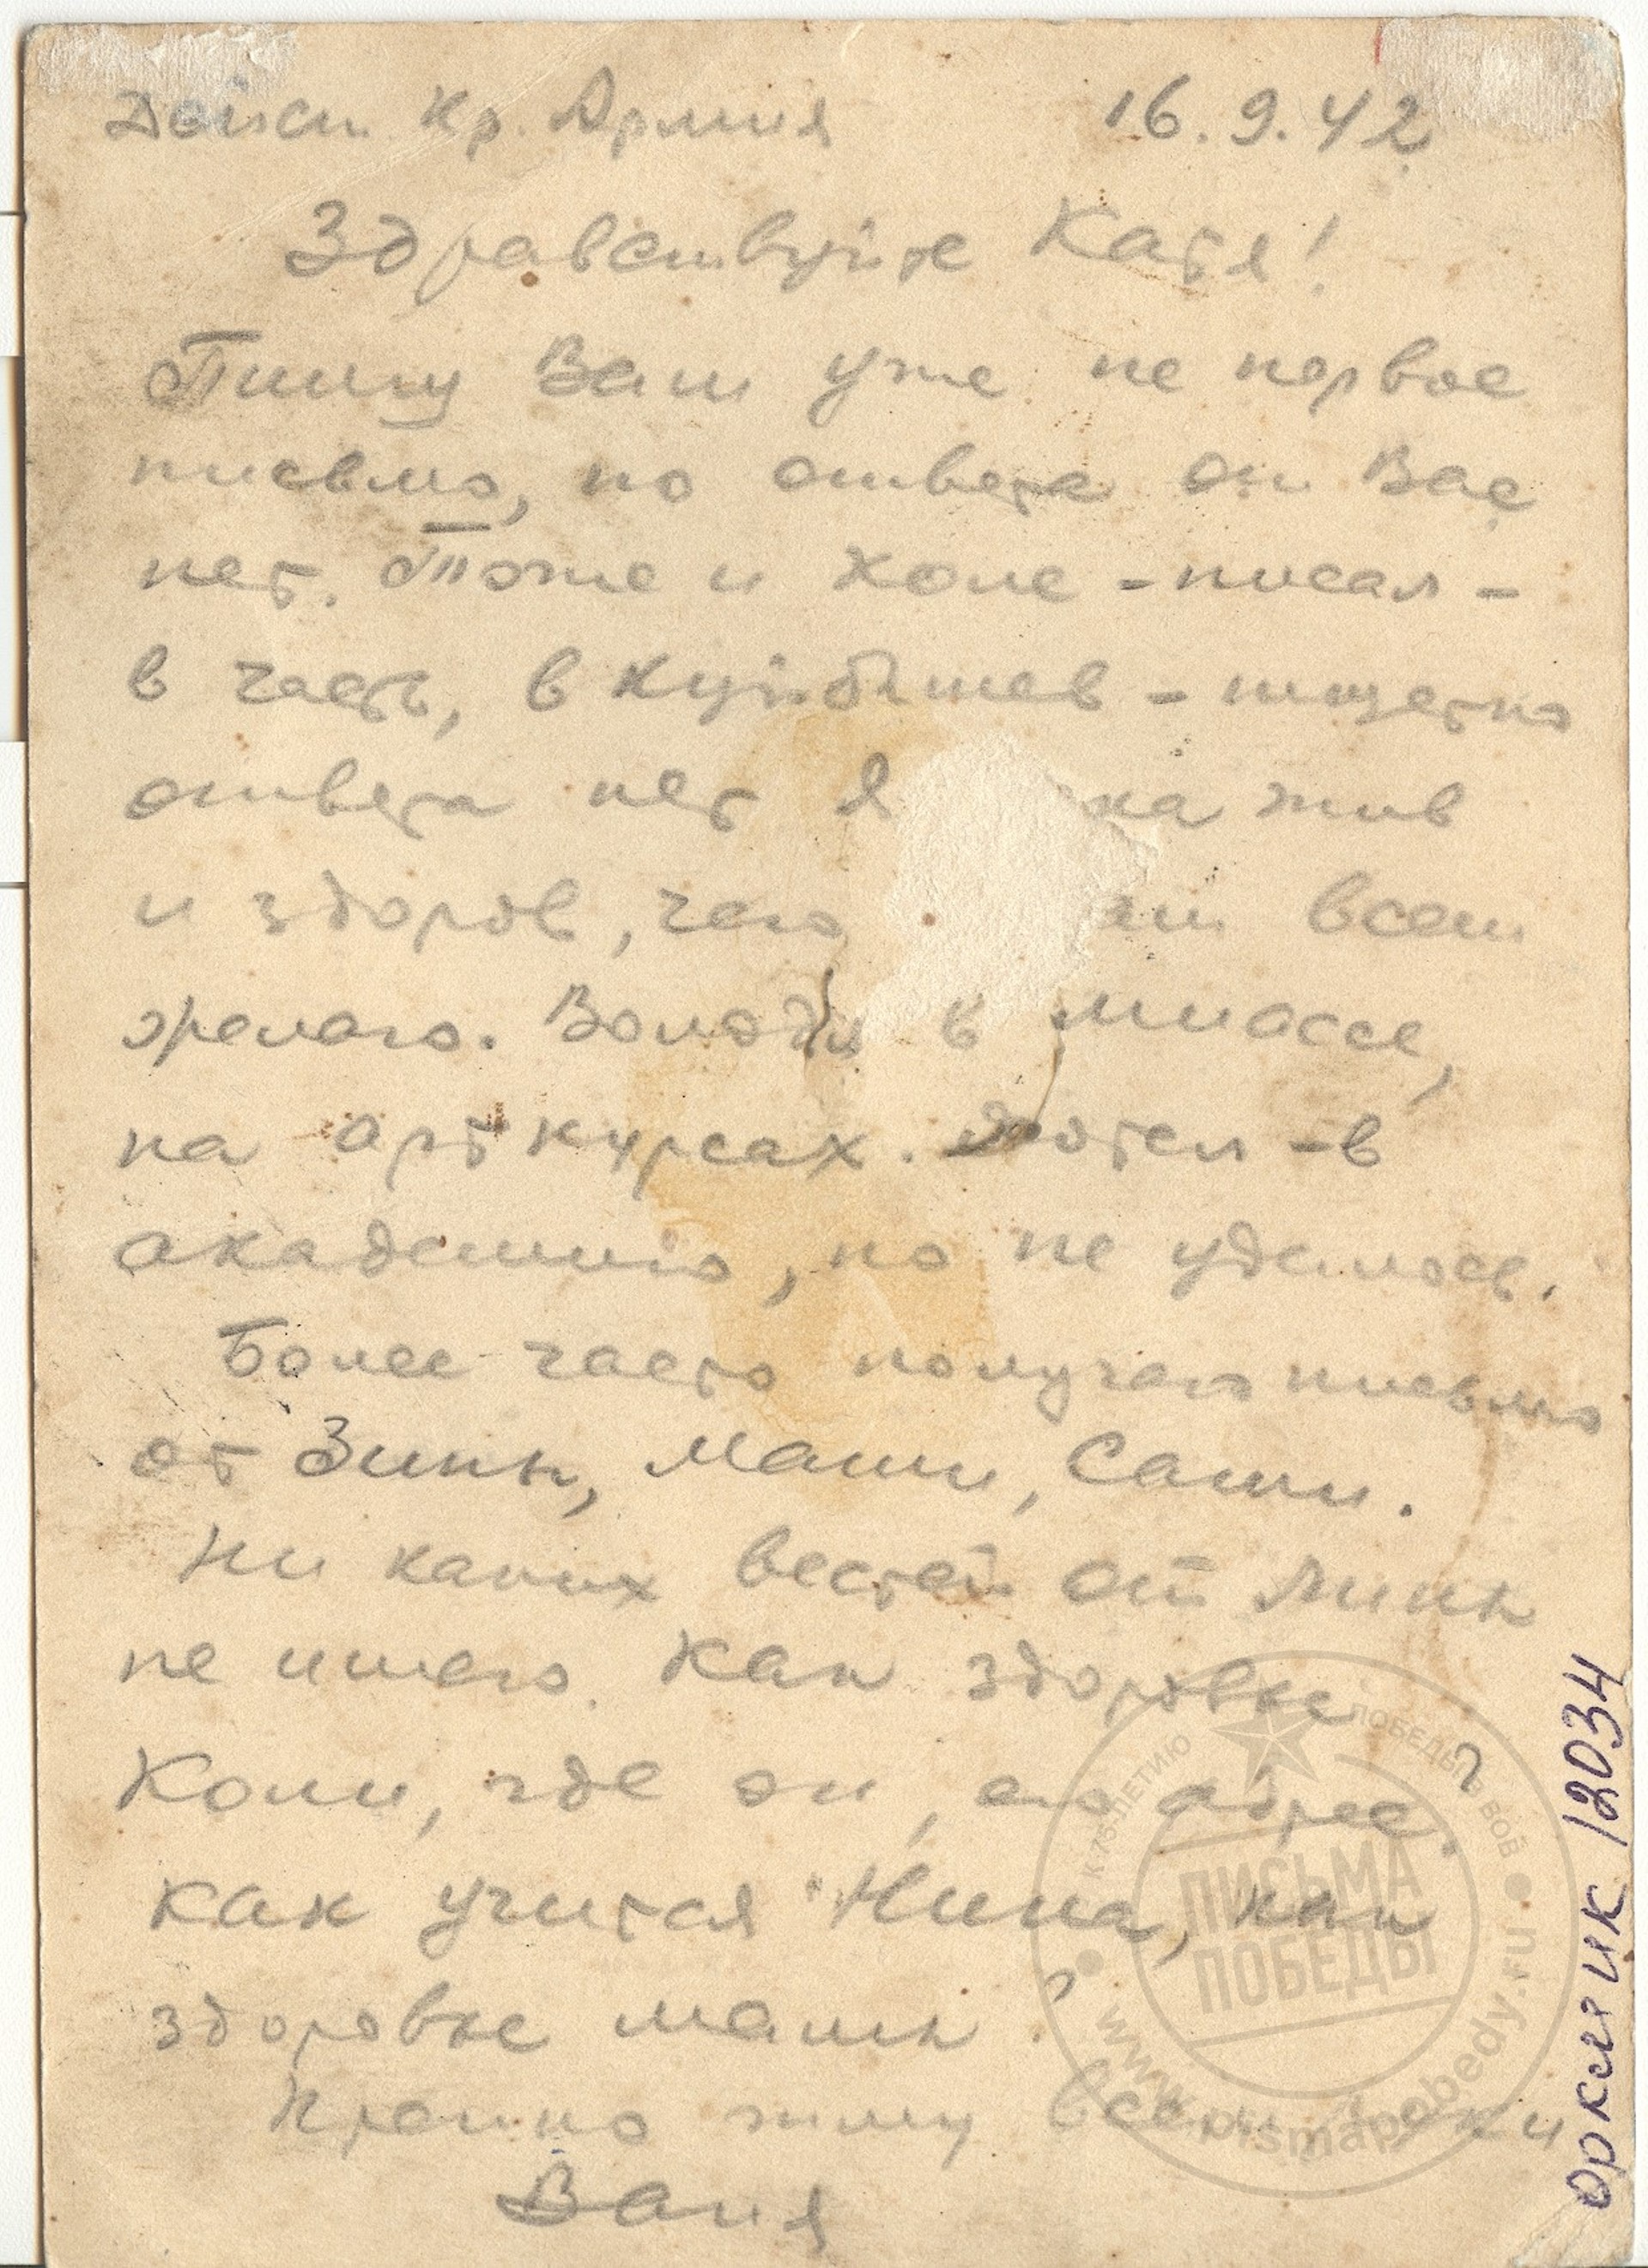 Дейст. Кр. Армия 16.9.42
Здравствуйте Катя!
Пишу Вам уже не первое
письмо, но ответа от Вас
нет. Тоже и Коле - писал -
в часть, в Куйбышев - тщетно
ответа нет Я ка жив
и здоров, чего ам всем
желаю. Володя в Миассе,
на арткурсах. Хотел - в
академию, но не удалось.
Более часто получаю письма
от Зины, Маши, Саши.
Ни каких вестей от Лины
не имею. Как здоровье
Коли, где он, его адрес?
как учится Нина, как
здоровье мамы?
Крепко жму всем руки
Ваня
ОРКИ и ИК 12034
К 75-ЛЕТИЮ ПОБЕДЫ В ВОВ
ПИСЬМА
ПОБЕДЫ
www.pismapobedy.ru